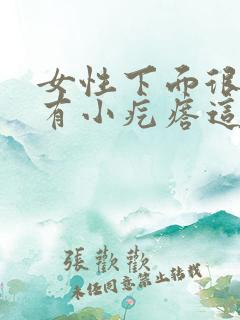 女性下面很
有小疙瘩這
張歡歡
未任同意禁止转载